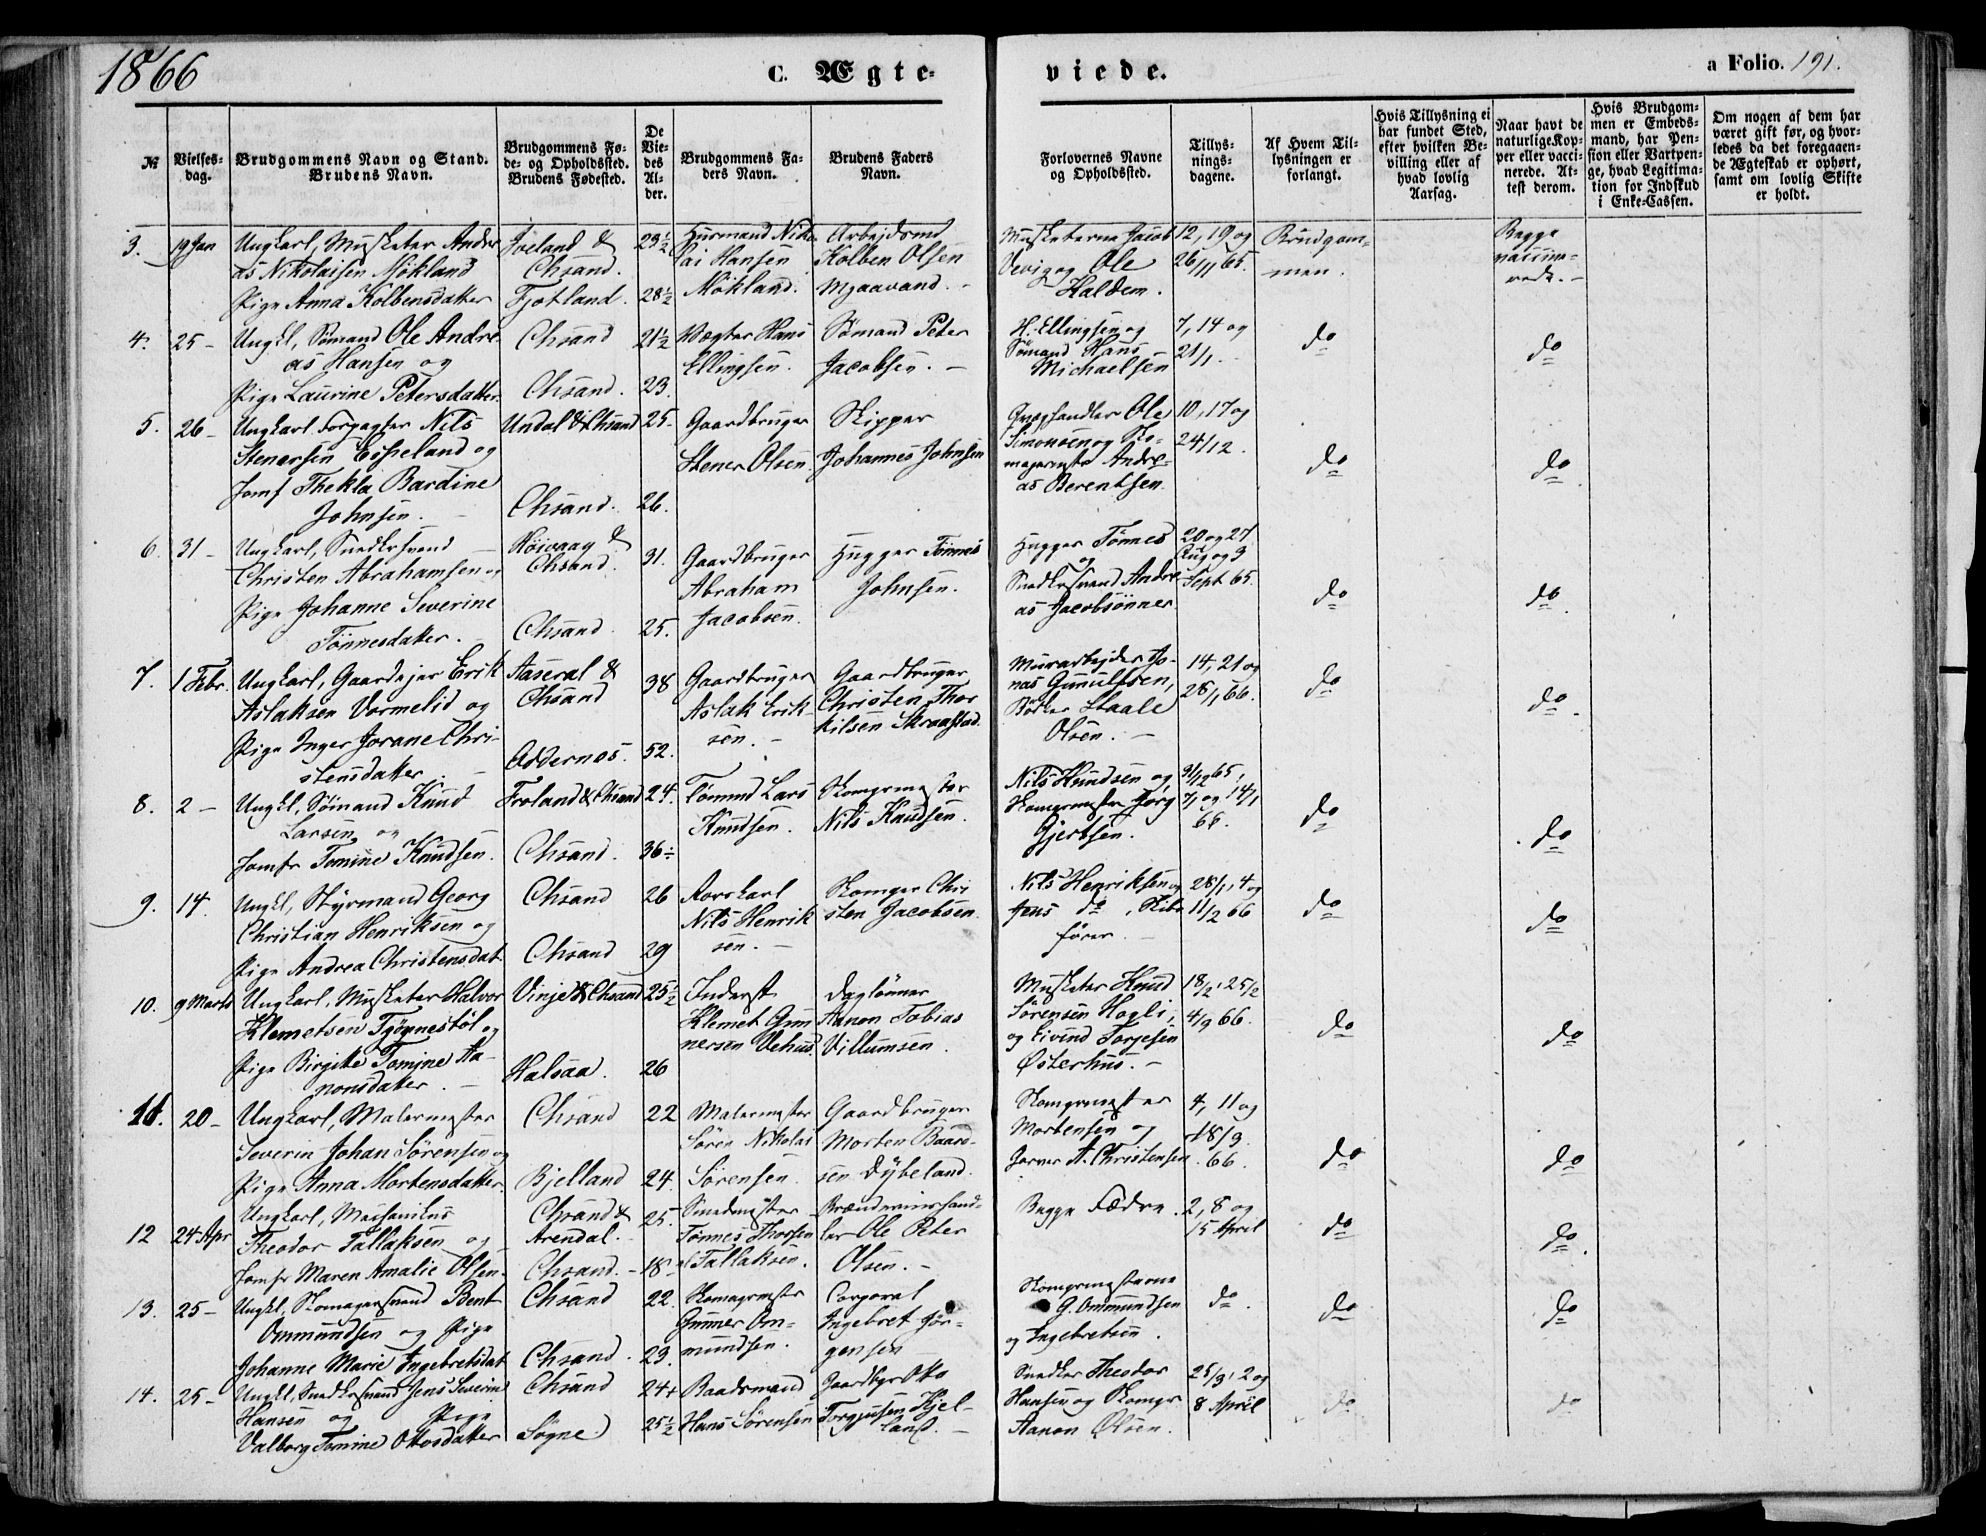 1866
C. Ægte-
viede.
a Folio. 191.
№
Vielses-
dag.
Brudgommens Navn og Stand.
Brudens Navn.
Brudgommens Fø-
de- og Opholdssted.
Brudens Fødested.
De
Vie-
des
Al-
der.
Brudgommens Fa-
ders Navn.
Brudens Faders
Navn.
Forlovernes Navne
og Opholdssted.
Tillys-
nings-
dagene.
Af Hvem Til-
lysningen er
forlangt.
Hvis Tillysning ei
har fundet Sted,
efter hvilken Be-
villing eller af
hvad lovlig
Aarsag.
Naar havt de
naturlige Kop-
per eller vacci-
nerede. At-
test derom.
Hvis Brudgom-
men er Embeds-
mand, har Pen-
sion eller Vartpen-
ge, hvad Legitima-
tion for Indskud
i Enke-Cassen.
Om nogen af dem har
været gift før, og hvor-
ledes da det foregaaen-
de Ægteskab er ophørt,
samt om lovlig Skifte
er holdt.
3. 19 Jan
Ungkarl, Musketer Andre
as Nikolaisen Mökland
Pige Anna Kolbensdatter
Iveland &
Chsand.
Fjotland.
23½
28½
Husmand Niko
lai Hansen
Mökland.
Arbejdsmd
Kolben Olsen
Mjaavand. -
Musketerne Jacob
Vevig og Ole
Haldem.
12, 19 og
26/11 65.
Brudgom-
men.
Begge
vaccine-
rede. -
4. 25 -
Ungkl, Sömand Ole Andre
as Hansen og
Pige Laurine Petersdatter.
Chsand
Chsand.
21½
23.
Vægter Hans
Ellingsen.
Sömand Peter
Jacobsen. -
H. Ellingsen og
Sömand Hans
Michaelsen
7, 14 og
21/1. -
do
do
5. 26 -
Ungkarl Forpagter Nils
Stenersen Espeland og
Jomf Thekla Bardine
Johnsen. -
Undal & Chsand
Chsand.
25.
26.
Gaardbruger
Stener Olsen.
Skipper
Johannes Johnsen
Qvæghandler Ole
Simonsen og Sko-
magermester Andre-
as Berentsen.
10, 17 og
24/12.
do
do
6. 31 -
Ungkarl, Snedkersvend
Christen Abrahamsen og
Pige Johanne Severine
Tönnesdatter. -
Höivaag &
Chsand.
Chsand
31.
25.
Gaardbruger
Abraham
Jacobsen.
Hugger Tönnes
Johnsen.
Hugger Tönnes
og
Snedkersvend Andre
as Jacobsönner
20 og 27
Aug og 3
Sept 65.
do
do.
7. 1 Febr.
Ungkarl, Gaardejer Erik
Aslaksen Vormelid og
Pige Inger Jorane Chri-
stensdatter. -
Aaseral &
Chsand
Oddernes.
38
52.
Gaardbruger
Aslak Erik-
sen. -
Gaardbruger
Christen Thor
kilsen Skraastad.
Murarbejder Jo-
nas Gunulfsen,
Bödker Staale
Olsen. -
14, 21 og
28/1 66.
do
do.
8. 2 -
Ungkl, Sömand Knud
Larsen og
Jomfr Tomine Knudsen.
Froland & Chsand
Chsand.
24.
36
Tömmd Lars
Knudsen.
Skomgrmester
Nils Knudsen.
Nils Knudsen og
Skomgrmester Jörg
Gjertsen.
31/12 65,
7, og 14/1
66.
do
do
9. 14.
Ungkl, Styrmand Georg
Christian Henriksen og
Pige Andrea Christensdat
Chsand
Chsand
26
29
Aorskarl
Nils Henrik
sen. -
Skomger Chri
sten Jacobsen.
Nils Henriksen og
Jens do, Skibs
förer. -
28/1, 4 og
11/2 66
do
do
10. 9 Marts
Ungkarl, Musketer Halvor
Klemetsen Tjögnestöl og
Pige Birgitte Tomine Aa-
nonsdatter. -
Vinje & Chsand
Halsaa.
25½
26
Inderst
Klemet Gun
nersen Vehus.
Daglönner
Aanon Tobias
Villumsen.
Musketer Knud
Sörensen Hogli,
og Eivind Torjesen
Österhus. -
18/2, 25/2
4/3 66.
do
do
11. 20 -
Ungkarl, Malermester
Severin Johan Sörensen og
Pige Anna Mortensdatter.
Chsand
Bjelland
22
24.
Malermester
Sören Nikolai
Sörensen.
Gaardbruger
Morten Baard-
sen Dybeland.
Skomgrmester
Mortensen og
Farver A. Christensen
4, 11 og
18/3.
66.
do
do
12 24 Apr
Ungkarl, Mechanikus
Theodor Tallaksen og
Jomfr Maren Amalie Olsen.
Chsand &
Arendal. -
Chsand. -
25.
18
Smedmester
Tönnes Thorsen
Tallaksen.
Brændevinshand-
ler Ole Peter
Olsen. -
Begge Fædre.
2, 8 og
15 April
do
do.
13. 25 -
Ungkl, Skomagersvend Bent
Ommundsen og Pige
Johanne Marie Ingebretsdat
Chsand
Chsand.
22.
23.
Skomagrmester
Gunner Om-
mundsen.
Corporal
Ingebret Jör-
gensen
Skomgrmesterne
G. Ommundsen
og Ingebretsen.
do.
do
do
14. 25 -
Ungkl, Snedkersvend Jens Severin
Hansen og Pige
Valborg Tomine Ottosdatter
Chsand
Sögne
24
25½
Baadsmand
Hans Sörensen
Gaardbgr Otto
Torgjusen Kjel-
land. -
Snedker Theodor
Hansen og Skomgr
Aanon Olsen.
25/3, 2 og
8 April
do
do